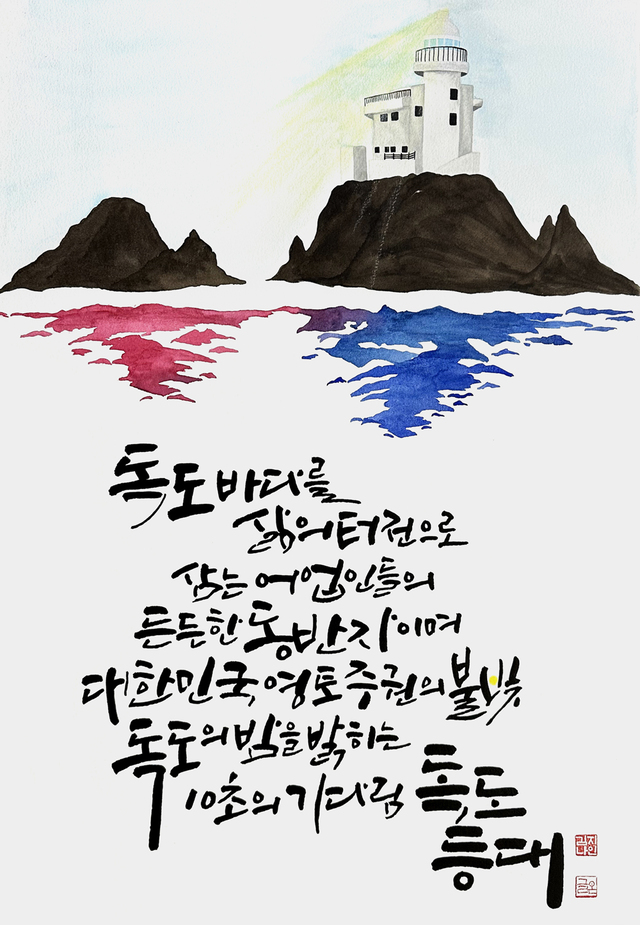 독도 바다를
삶의 터전으로
삼는 어업인들의
든든한 동반자이며
대한민국 영토주권의 불빛
독도의 밤을 밝히는
10초의 기다림 독도
등대